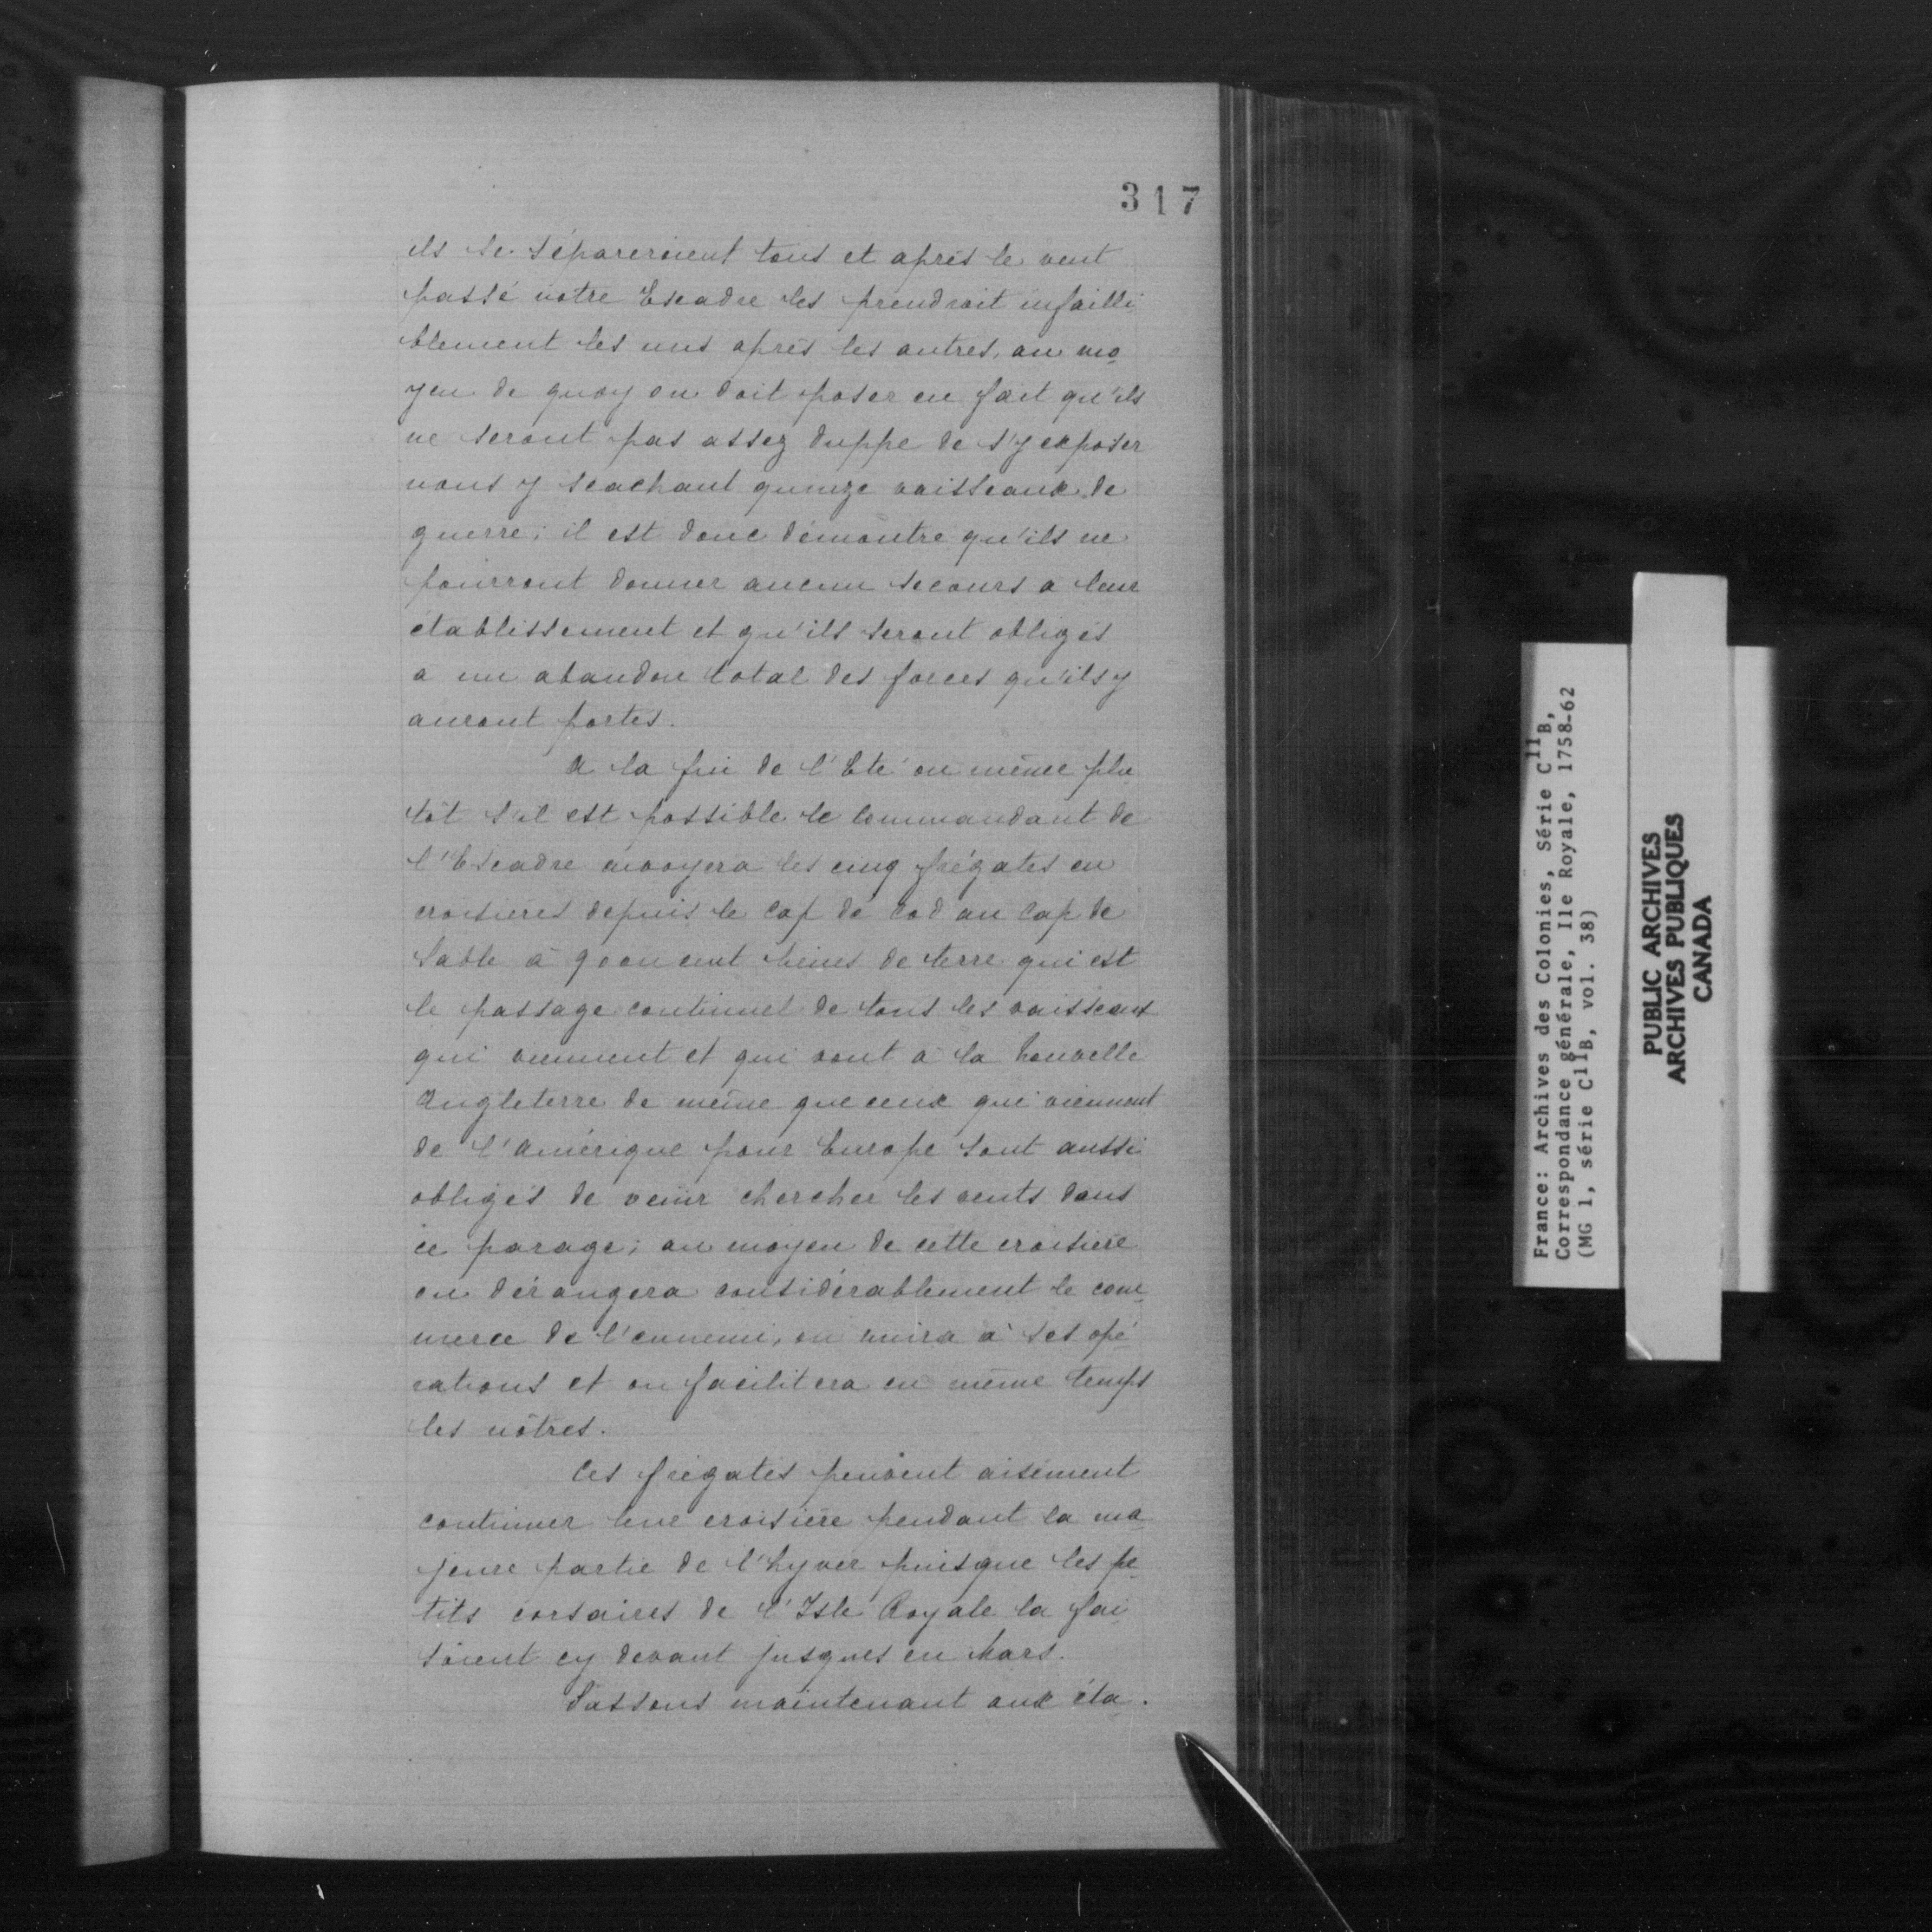 317
ils se sépareroient tous et après le vent
passé notre Escadre les prendroit infailli
blement les uns après les autres, au mo
yen de quoy on doit poser en fait qu'ils
ne seront pas assez duppe de s'y exposer
nous y scachant quinze vaisseaux de
guerre; il est donc démontré qu'ils ne
pourront donner aucun secours a leur
établissement et qu'ils seront obligés
a un abandon total des forces qu'ils y
auront portés.
A la fin de l'Eté ou même plu
tôt s'il est possible le commandant de
l'Escadre envoyera les cinq frégates en
croisières depuis le Cap de Cod au Cap de
Sable à 90 ou cent lieues de terre qui est
le passage continuel de tous les vaisseaux
qui viennent et qui vont à la Nouvelle
Angleterre de même que ceux qui viennent
de l'Amérique pour Europe sont aussi
obligés de venir chercher les vents dans
ce parage; au moyen de cette croisière
on dérangera considérablement le com
merce de l'ennemi, on nuira à ses opé
rations et on facilitera en même temps
les nôtres.
Ces frégates peuvent aisément
continuer leur croisière pendant la ma
jeure partie de l'hyver puisque les pe
tits corsaires de l'Isle Royale la fai
soient cy devant jusques en Mars.
Passons maintenant aux éta.
France: Archives des Colonies, Série C11B,
Correspondance générale, Ile Royale, 1758-62
(MG 1, série C11B, vol. 38)
PUBLIC ARCHIVES
ARCHIVES PUBLIQUES
CANADA